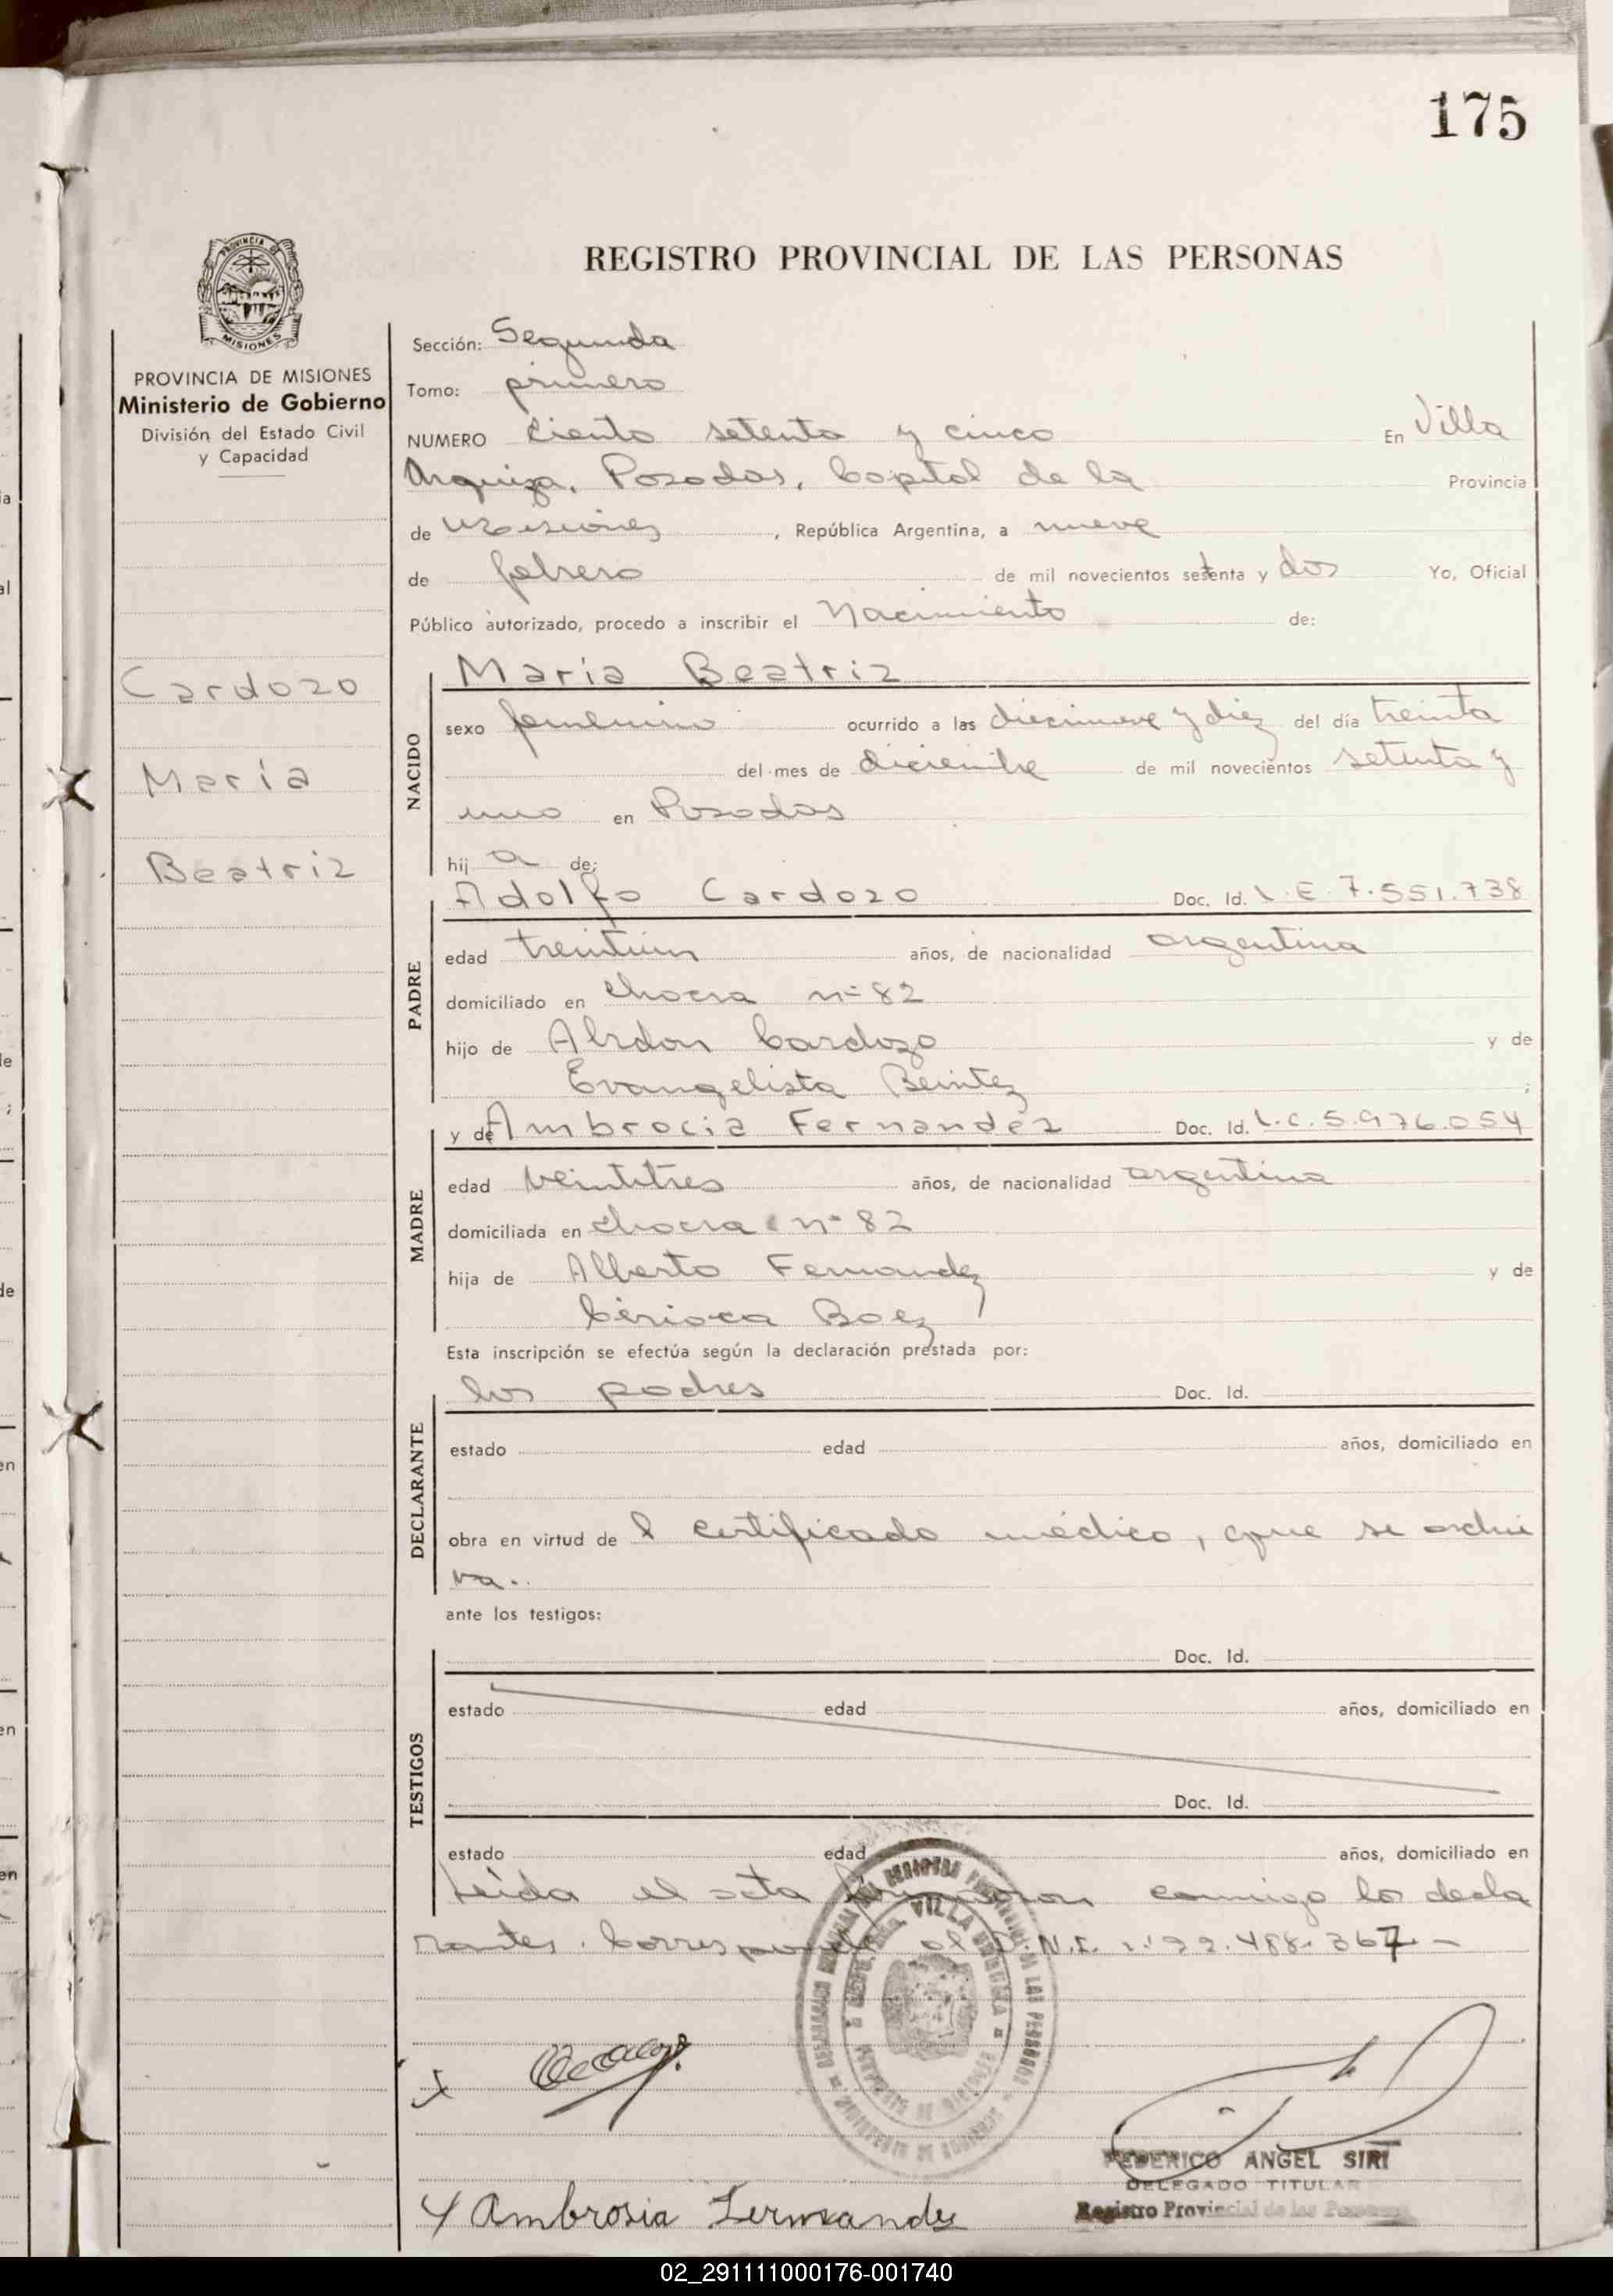 175
PROVINCIA DE
MISIONES
REGISTRO PROVINCIAL DE LAS PERSONAS
PROVINCIA DE MISIONES
Ministerio de Gobierno
División del Estado Civil
y Capacidad
Cardozo
María
Beatriz
Sección: Segunda
Tomo: primero
NUMERO Ciento setenta y cinco En Villa
Urquiza, Posadas, Capital de la Provincia
de Misiones, República Argentina, a nueve
de febrero de mil novecientos setenta y dos Yo, Oficial
Público autorizado, procedo a inscribir el Nacimiento de:
NACIDO
María Beatriz
sexo femenino ocurrido a las diecinueve y diez del día treinta
del mes de diciembre de mil novecientos setenta y
uno en Posadas
hij a de:
PADRE
Adolfo Cardozo Doc. Id. L.E 7.551.738
edad treintiun años, de nacionalidad argentina
domiciliado en chacra nº 82
hijo de Abdon Cardozo y de
Evangelista Benitez ;
MADRE
y de Ambrocia Fernandez Doc. Id. L.C.5.976.054
edad veintitres años, de nacionalidad argentina
domiciliada en chacra nº 82
hija de Alberto Fernandez y de
Baez
Esta inscripción se efectúa según la declaración prestada por:
DECLARANTE
los padres Doc. Id.
estado edad años, domiciliado en
obra en virtud de l certificado médico, que se archi
va.
ante los testigos:
TESTIGOS
Doc. Id.
estado edad años, domiciliado en
Doc. Id.
estado edad años, domiciliado en
Leida el acta firmaron conmigo los decla
rantes. Corresponde al D.N.I. nº 22.488.367.-
VILLA URQUIZA
FEDERICO ANGEL SIRI
DELEGADO TITULAR
Registro Provincial de las Personas
Ambrosia Fernandez
02_291111000176-001740